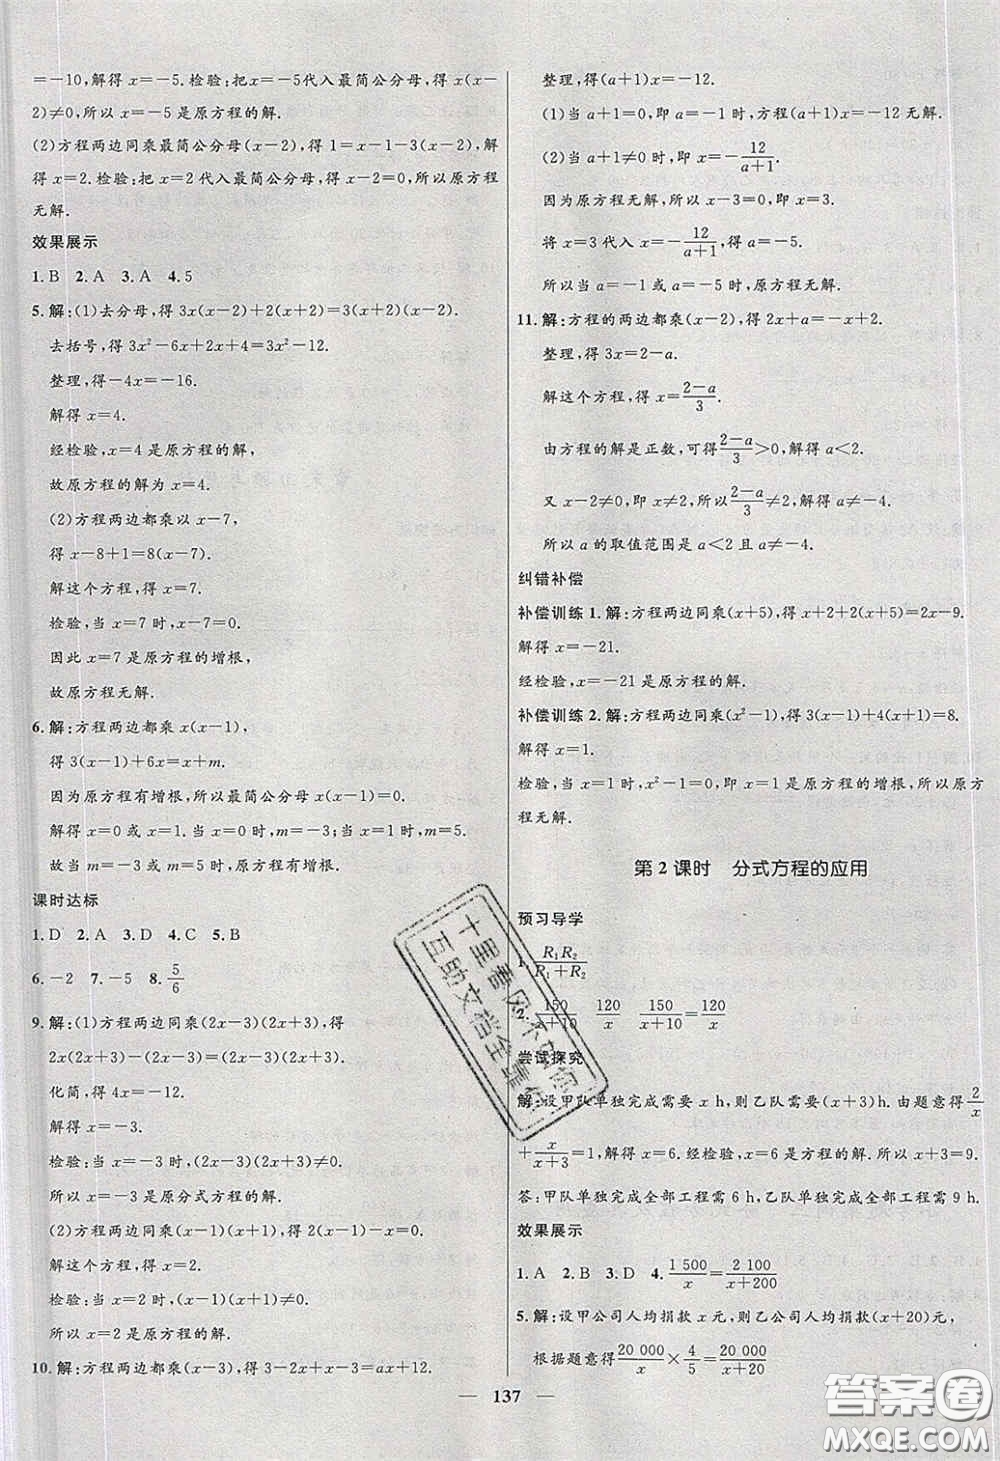 =-10,解得 x=-5.检验:把 x=-5代入最简公分母,得 x(x-
2)≠0,所以 x=-5是原方程的解.
(2)方程两边同乘最简公分母(x-2),得 1=x-1-3(x-2),解
得 x=2.检验:把 x=2 代入最简公分母,得 x-2=0,所以原方程
无解.
效果展示
1.B 2.A 3.A 4.5
5.解:(1)去分母,得 3x(x-2)+2(x+2)=3(x+2)(x-2).
去括号,得 3x²-6x+2x+4=3x²-12.
整理,得-4x=-16.
解得 x=4.
经检验,x=4 是原方程的解.
故原方程的解为 x=4.
(2)方程两边都乘以 x-7,
得 x-8+1=8(x-7).
解这个方程,得 x=7.
检验,当 x=7 时,x-7=0.
因此 x=7 是原方程的增根,
故原方程无解.
6.解:方程两边都乘 x(x-1),
得 3(x-1)+6x=x+m.
因为原方程有增根,所以最简公分母 x(x-1)=0.
解得 x=0 或 x=1.当 x=0 时,m=-3;当 x=1 时,m=5.
故当 m=-3 或 m=5 时,原方程有增根.
课时达标
1.D 2.A 3.D 4.C 5.B
6.-2 7.-5 8.5/6
9.解:(1)方程两边同乘(2x-3)(2x+3),得
2x(2x+3)-(2x-3)=(2x-3)(2x+3).
化简,得 4x=-12.
解得 x=-3.
检验:当 x=-3 时,(2x-3)(2x+3)≠0.
所以 x=-3 是原分式方程的解.
(2)方程两边同乘(x-1)(x+1),得 2(x-1)-x=0.
解这个方程,得 x=2.
检验:当 x=2 时,(x-1)(x+1)≠0.
所以 x=2 是原方程的解.
10.解:方程两边都乘(x-3),得 3-2x+x-3=ax+12.
整理,得(a+1)x=-12.
(1)当 a+1=0,即 a=-1 时,方程(a+1)x=-12 无解.
(2)当 a+1≠0,即 a≠-1 时,x=-12/(a+1).
因为原方程无解,所以 x-3=0,即 x=3.
将 x=3 代入 x=-12/(a+1),得 a=-5.
所以当 a=-1 或 a=-5 时,原方程无解.
11.解:方程的两边都乘(x-2),得 2x+a=-x+2.
整理,得 3x=2-a.
解这个方程,得 x=(2-a)/3.
由方程的解是正数,可得(2-a)/3>0,解得 a<2.
又 x-2≠0,即 x≠2,所以(2-a)/3≠2,解得 a≠-4.
所以 a 的取值范围是 a<2 且 a≠-4.
纠错补偿
补偿训练 1.解:方程两边同乘(x+5),得 x+2+2(x+5)=2x-9.
解得 x=-21.
经检验,x=-21 是原方程的解.
补偿训练 2.解:方程两边同乘(x²-1),得 3(x-1)+4(x+1)=8.
解得 x=1.
检验,当 x=1 时,x²-1=0,即 x=1 是原方程的增根,所以,原方
程无解.
第 2 课时 分式方程的应用
预习导学
1. R₁R₂/(R₁+R₂)
2. 150/(x+10) 120/x 150/(x+10)=120/x
尝试探究
解:设甲队单独完成需要 x h,则乙队需要(x+3)h. 由题意得2/x
+x/(x+3)=1,解得 x=6. 经检验,x=6 是方程的解. 所以 x+3=9.
答:甲队单独完成全部工程需 6 h,乙队单独完成全部工程需 9 h.
效果展示
1.A 2.B 3.D 4. 1 500/x=2 100/(x+200)
5.解:设甲公司人均捐款 x 元,则乙公司人均捐款(x+20)元,
根据题意得20 000/x×4/5=20 000/(x+20)
137
十里春风不如你
互助文档全靠你
答案圈
MXQE.COM